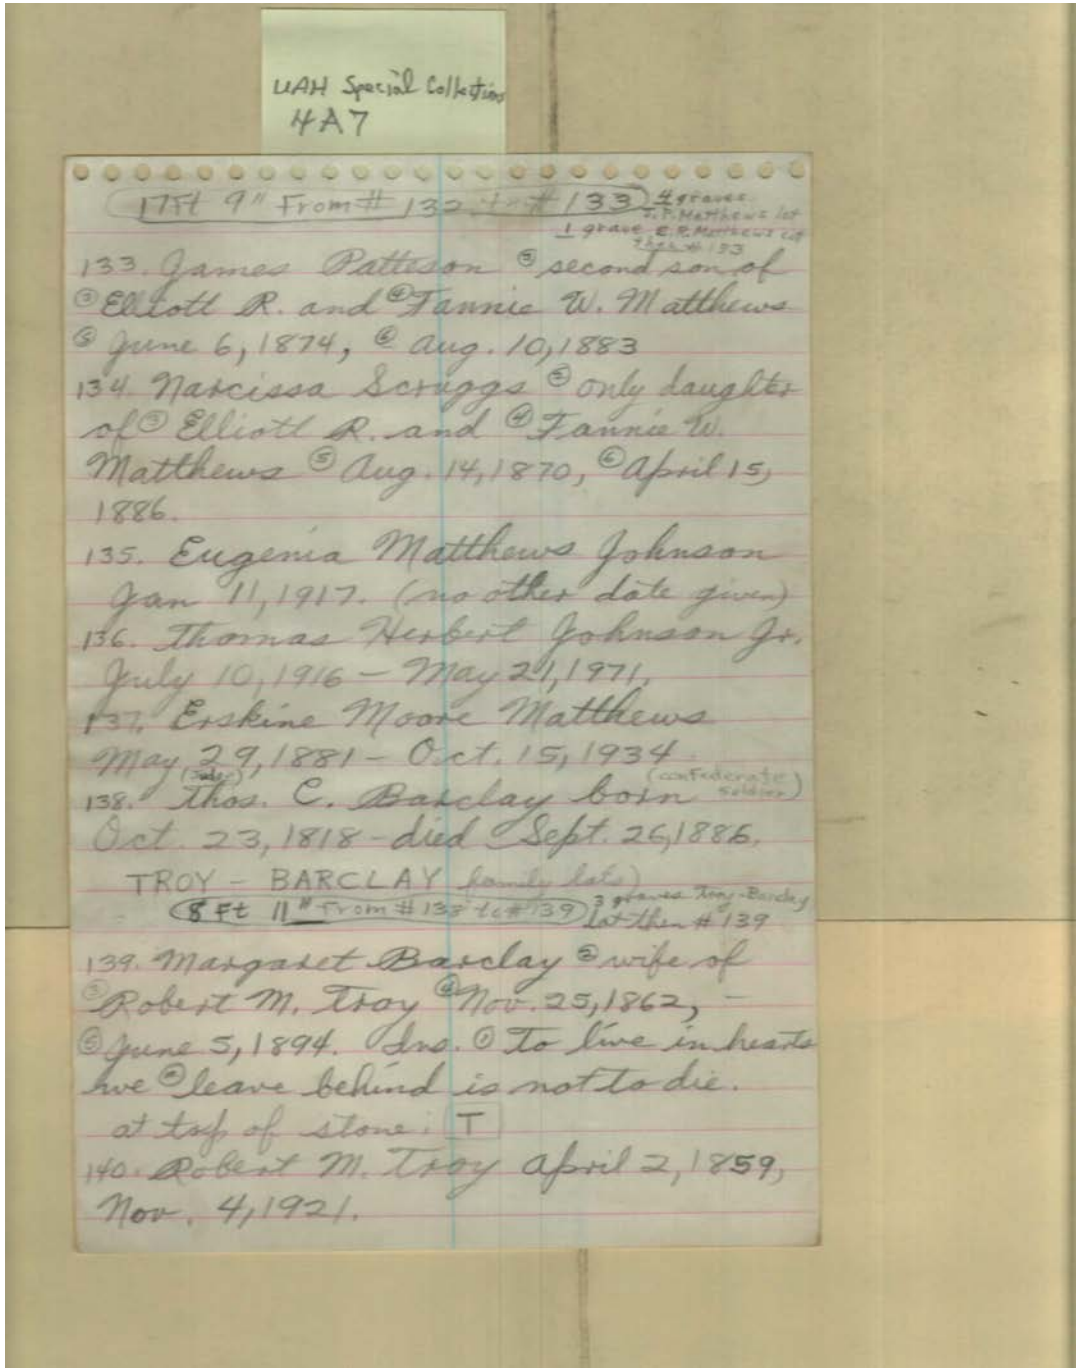 UAH Special Collections
4A7
17Ft 9" From # 132 to # 133 4 graves
J.P. Matthews lot
1 grave E.R. Matthews lot
then # 133
133. James Patteson ② second son of
③ Elliott R. and ④ Fannie W. Matthews
⑤ June 6, 1874, ⑥ Aug. 10, 1883
134. Narcissa Scruggs ② only daughter
of ③ Elliott R. and ④ Fannie W.
Matthews ⑤ Aug. 14, 1870, ⑥ April 15,
1886.
135. Eugenia Matthews Johnson
Jan 11, 1917. (no other date given)
136. Thomas Herbert Johnson Jr.
July 10, 1916 - May 21, 1971.
137. Erskine Moore Matthews
May 29, 1881 - Oct. 15, 1934
(Judge) (confederate
138. Thos. C. Barclay born soldier)
Oct. 23, 1818 - died Sept. 26, 1886.
TROY - BARCLAY family lots)
8 Ft 11" From # 138 to # 139 3 graves Troy-Barclay
lot then # 139
139. Margaret Barclay ② wife of
③ Robert M. Troy ④ Nov. 25, 1862, -
⑤ June 5, 1894. Ins. ① To live in hearts
we ② leave behind is not to die.
at top of stone: T
140. Robert M. Troy April 2, 1859,
Nov. 4, 1921.